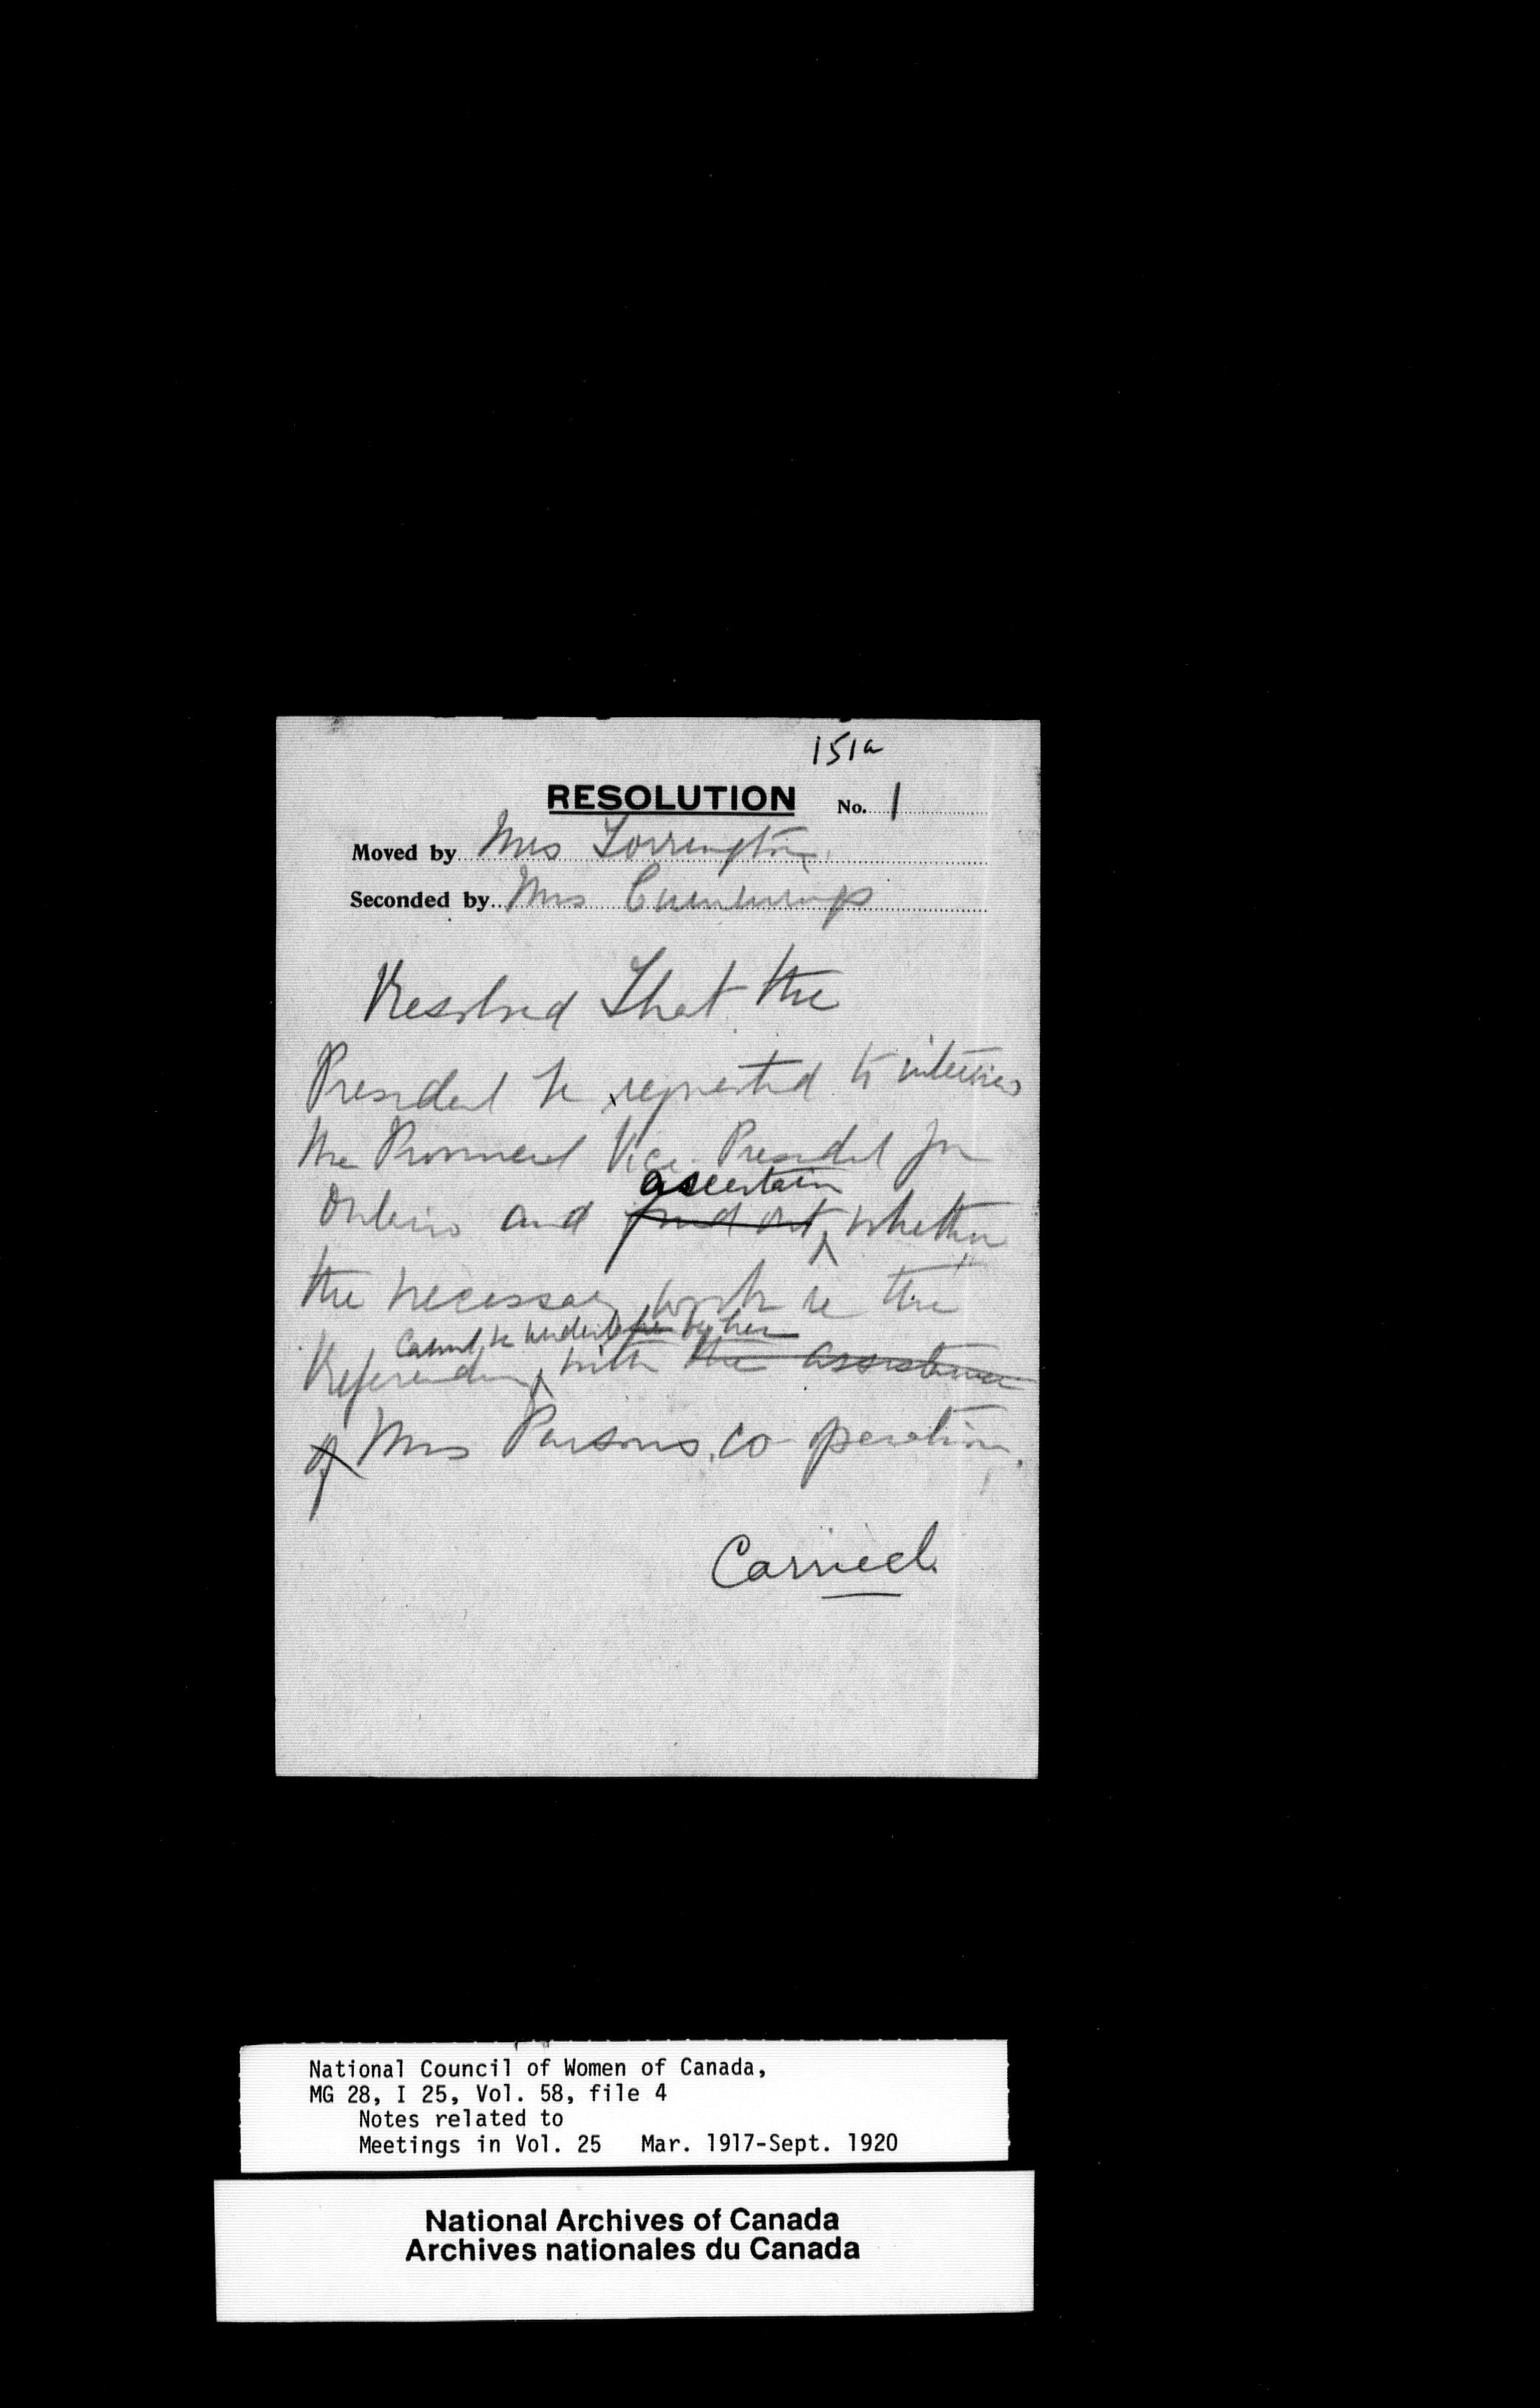 151a
RESOLUTION No. 1
Moved by Mrs Torrington
Seconded by Mrs Cummings
Resolved That the
President be requested to interview
the Provincial Vice President for
ascertain
Ontario and find out whether
the necessary work re the
be undertaken by her
Referendum with the assistance
of Mrs Parsons co-operation.
Carried.
National Council of Women of Canada,
MG 28, I 25, Vol. 58, file 4
Notes related to
Meetings in Vol. 25 Mar. 1917-Sept. 1920
National Archives of Canada
Archives nationales du Canada